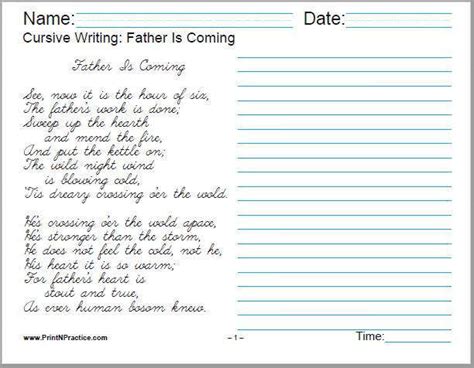 Name:
Date:
Cursive Writing: Father Is Coming
Father Is Coming
See, now it is the hour of six,
The father's work is done;
Sweep up the hearth
and mend the fire,
And put the kettle on;
The wild night wind
is blowing cold,
'Tis dreary crossing o'er the wold.
He's crossing o'er the wold apace,
He's stronger than the storm,
He does not feel the cold, not he,
His heart it is so warm;
For father's heart is
stout and true,
As ever human bosom knew.
www.PrintNPractice.com
– 1 –
Time: